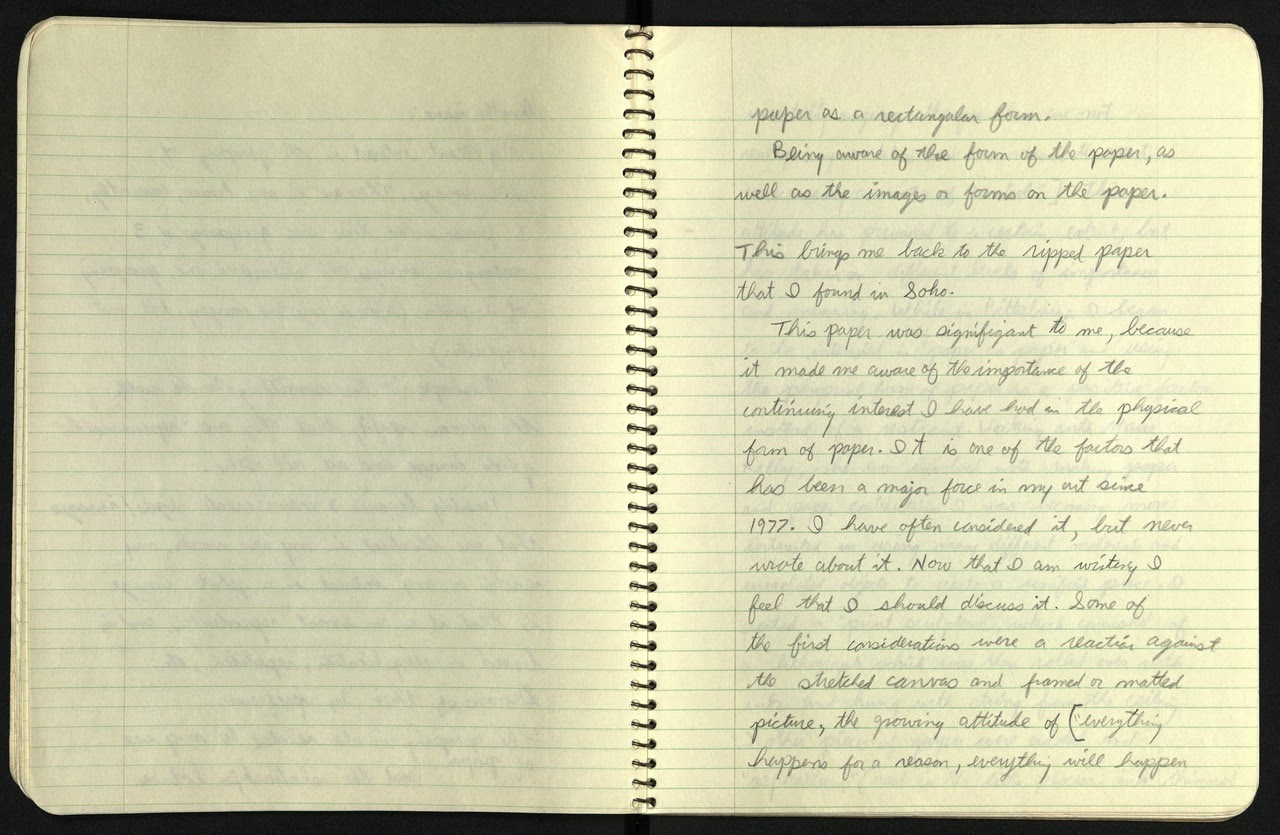 paper as a rectangular form.
Being aware of the form of the paper, as
well as the images or forms on the paper.
This brings me back to the ripped paper
that I found in Soho.
This paper was signifigant to me, because
it made me aware of the importance of the
continuing interest I have had in the physical
form of paper. It is one of the factors that
has been a major force in my art since
1977. I have often considered it, but never
wrote about it. Now that I am writing I
feel that I should discuss it. Some of
the first considerations were a reaction against
the stretched canvas and framed or matted
picture, the growing attitude of ("everything
happens for a reason, everything will happen